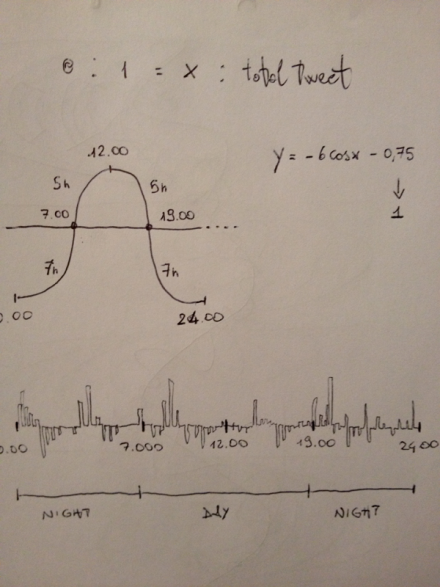 : 1 = x : total tweet
12.00
y = -6cosx - 0,75
5h 5h
1
7.00 19.00
7h 7h
.00 24.00
.00 7.000 12.00 19.00 24,00
NIGHT DAY NIGHT